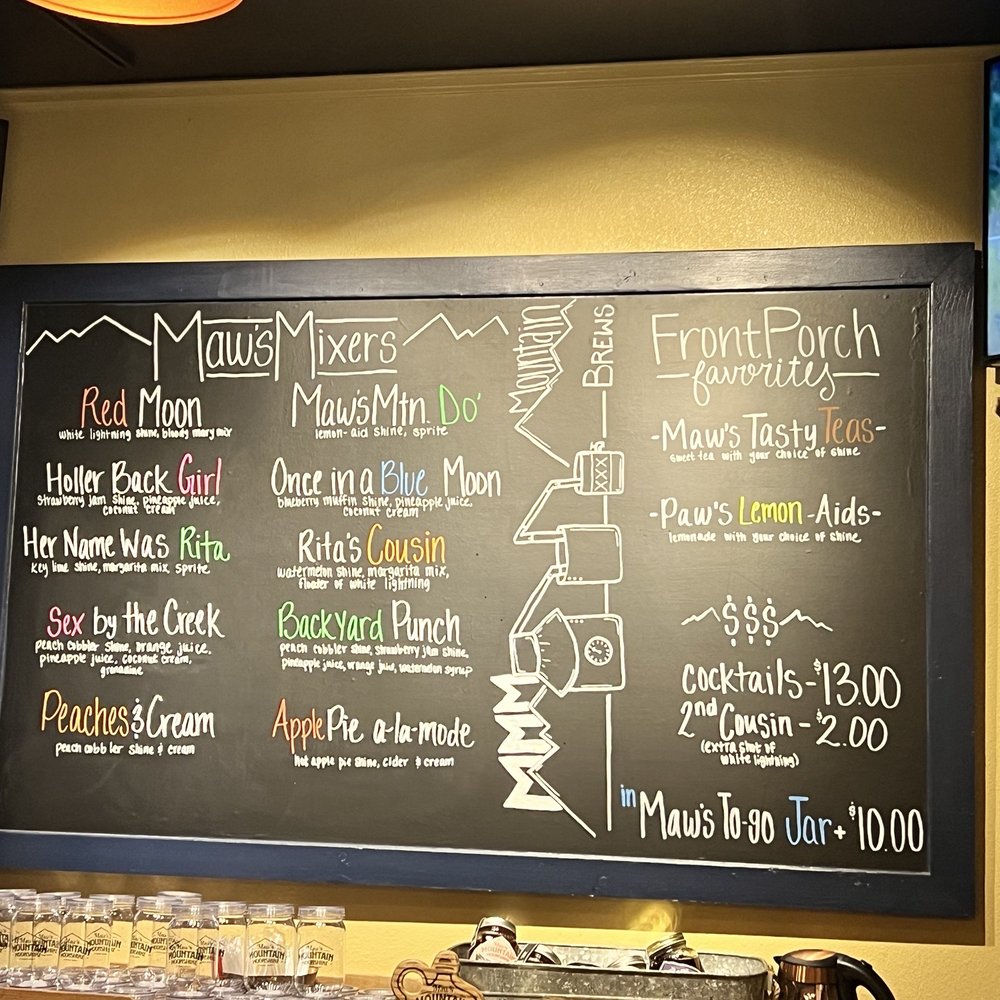 Maw's Mixers
Red Moon
white lightning shine, bloody mary mix
Holler Back Girl
strawberry jam shine, pineapple juice,
coconut cream
Her Name Was Rita
key lime shine, margarita mix, sprite
Sex by the Creek
peach cobbler shine, orange juice,
pineapple juice, coconut cream,
grenadine
Peaches & Cream
peach cobbler shine & cream
Maw's Mtn. Do'
lemon-aid shine, sprite
Once in a Blue Moon
blueberry muffin shine, pineapple juice,
coconut cream
Rita's Cousin
watermelon shine, margarita mix,
floater of white lightning
Backyard Punch
peach cobbler shine, strawberry jam shine,
pineapple juice, orange juice, watermelon syrup
Apple Pie a-la-mode
hot apple pie shine, cider & cream
Mountain
Brews
XXX
MMM
Front Porch
favorites
-Maw's Tasty Teas-
sweet tea with your choice of shine
-Paw's Lemon-Aids-
lemonade with your choice of shine
$$$
cocktails - $13.00
2nd Cousin - $2.00
(extra shot of
white lightning)
in Maw's To-go Jar + $10.00
Maw's
MOUNTAIN
MOONSHINE